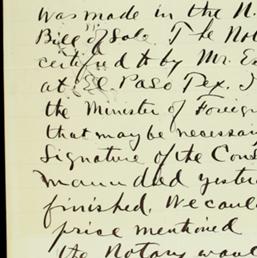 was made in the N.
Bill of Sale. The Not
certified to by Mr. Es
at El Paso Tex. I
the Minister of Foreign
that may be necessar
Signature of the Cons
manu dad yester
finished. We coul
price mentioned
the Notary woul